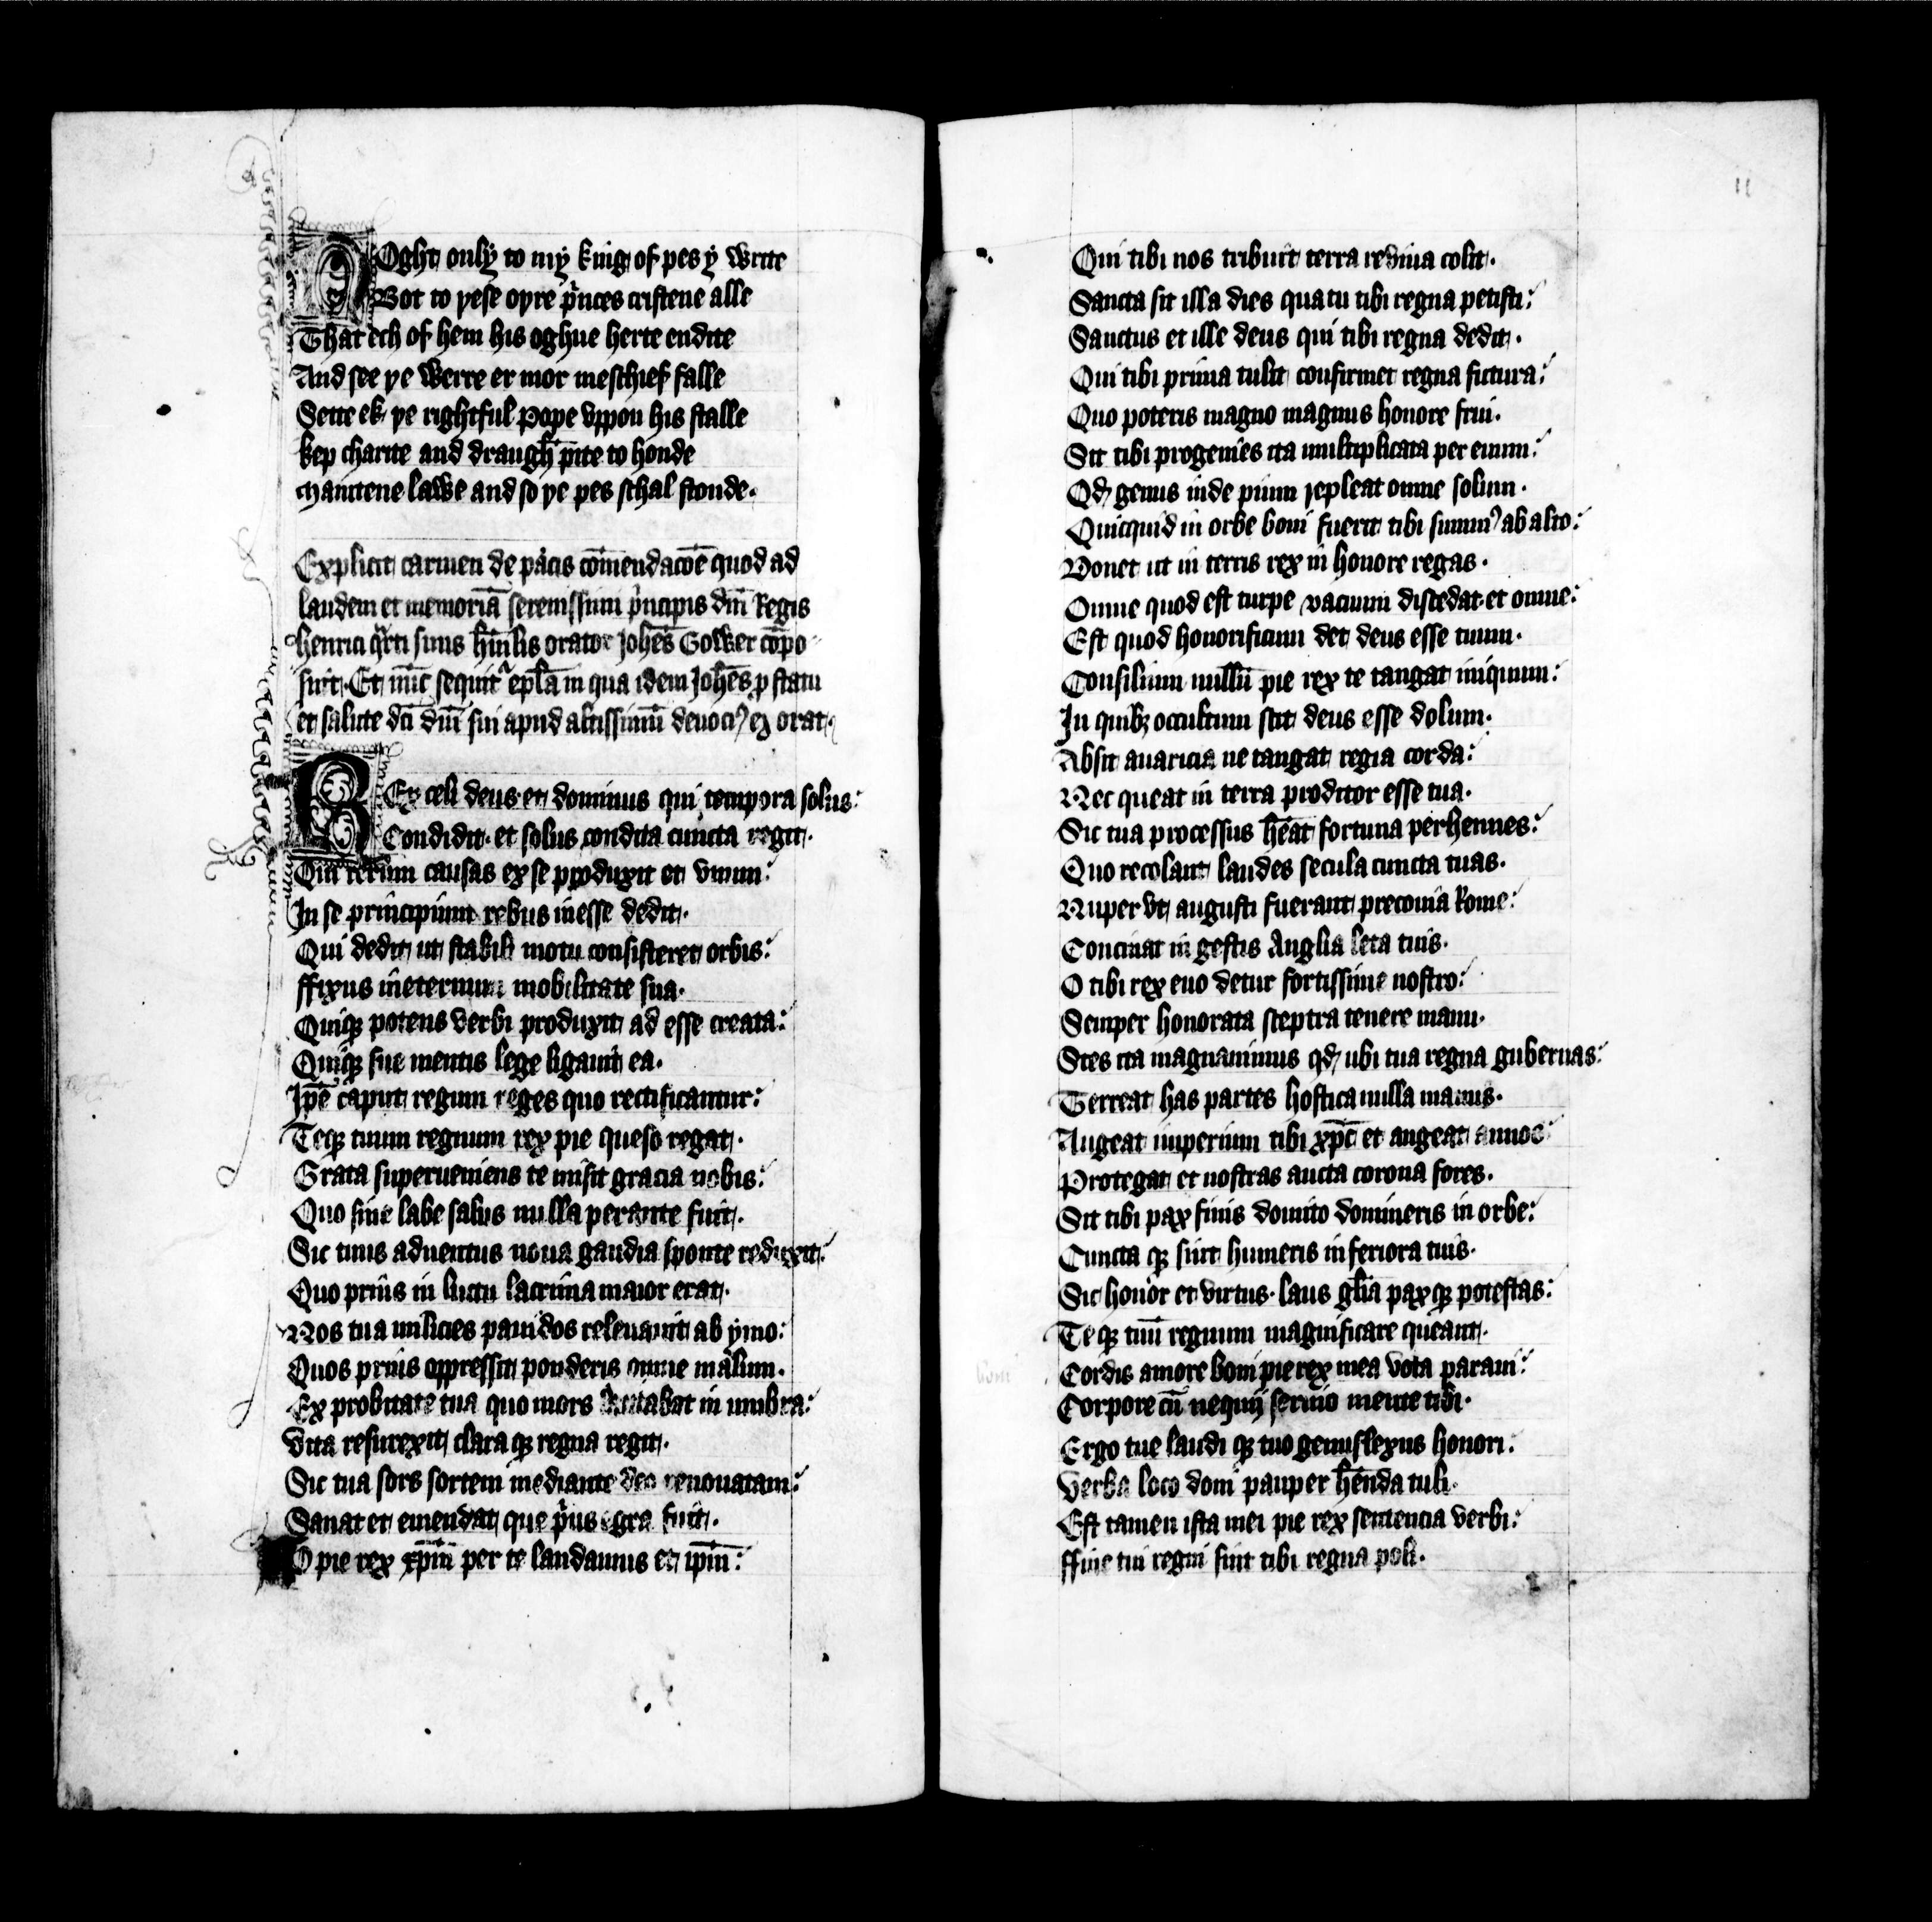 NOght only to my king of pes y write
Bot to þese oþre p̾nces cristene alle
That ech of hem his oghne herte endite
And see þe werre er mor meschief falle
Sette ek þe rightful Pope vppon his stalle
kep charite and draugh pite to honde
Maintene lawe and so þe pes schal stonde.
Explicit carmen de pacis com̄endac̄oe quod ad
laudem et memoriā serenissimi p̾ncipis dn̄i Regis
Henrici qͣrti suus hūilis orator Joh̄es Gower cōpo-
suit. Et nūc sequitᷣ ep̄la in qua idem Joh̄es ꝓ statu
et salute dc̄i dn̄i sui apud altissimū deuociꝰ exorat.
REx celi deus et dominus qui tempora solus:
Condidit. et solus condita cuncta regit.
Qui rerum causas ex se produxit et vnum:
In se principium rebus inesse dedit.
Qui dedit ut stabili motu consisteret orbis:
ffixus ineternum mobilitate sua.
Quiqꝫ potens verbi produxit ad esse creata:
Quiqꝫ sue mentis lege ligauit ea.
Ip̄e caput regum reges quo rectificantur:
Teqꝫ tuum regnum rex pie queso regat.
Grata superueniens te misit gracia nobis:
Quo sine labe salus nulla perante fuit.
Sic tuus aduentus noua gaudia sponte reduxit:
Quo prius in luctu lacrima maior erat.
Nos tua milicies pauidos releuauit ab ymo:
Quos prius oppressit ponderis omne malum.
Ex probitate tua quo mors latitabat in umbra:
Vita resurexit claraqꝫ regna regit.
Sic tua sors sortem mediante deo renouatam:
Sanat et emendat que p̾us egra fuit.
O pie rex xp̄m per te laudamus et ip̄m:
11
Qui tibi nos tribuit terra rediuia colit.
Sancta sit illa dies qua tu tibi regna petisti:
Sanctus et ille deus qui tibi regna dedit.
Qui tibi prima tulit confirmet regna futura:
Quo poteris magno magnus honore frui.
Sit tibi progenies ita multiplicata per euum:
Qd̵ genus inde pium repleat omne solum.
Quicquid in orbe boni fuerit tibi summꝰ ab alto:
Donet ut in terris rex in honore regas.
Omne quod est turpe vacuum discedat. et omne:
Est quod honorificum det deus esse tuum.
Consilium nullū pie rex te tangat iniquum:
In quibꝫ occultum scit deus esse dolum.
Absit auaricia ne tangat regia corda:
Nec queat in terra proditor esse tua.
Sic tua processus h̄eat fortuna perhennes:
Quo recolant laudes secula cuncta tuas.
Nuper vt augusti fuerant preconia Rome:
Concinat in gestis Anglia leta tuis.
O tibi rex euo detur fortissime nostro:
Semper honorata sceptra tenere manu.
Stes ita magnanimus qd̵ ubi tua regna gubernas:
Terreat has partes hostica nulla manus.
Augeat imperium tibi xp̄c et augeat annos:
Protegat et nostras aucta corona fores.
Sit tibi pax finis domito domineris in orbe:
Cunctaqꝫ sint humeris inferiora tuis.
Sic honor et virtus. laus gl̄ia paxqꝫ potestas:
Teqꝫ tuū regnum magnificare queant.
Cordis amore boni pie rex mea vota paraui:
Corpore cū nequij seruio mente tibi.
Ergo tue laudi qꝫ tuo genuflexus honori:
Verba loco doni pauper h̄enda tuli.
Est tamen ista mei pie rex sentencia verbi:
ffine tui regni sint tibi regna poli.